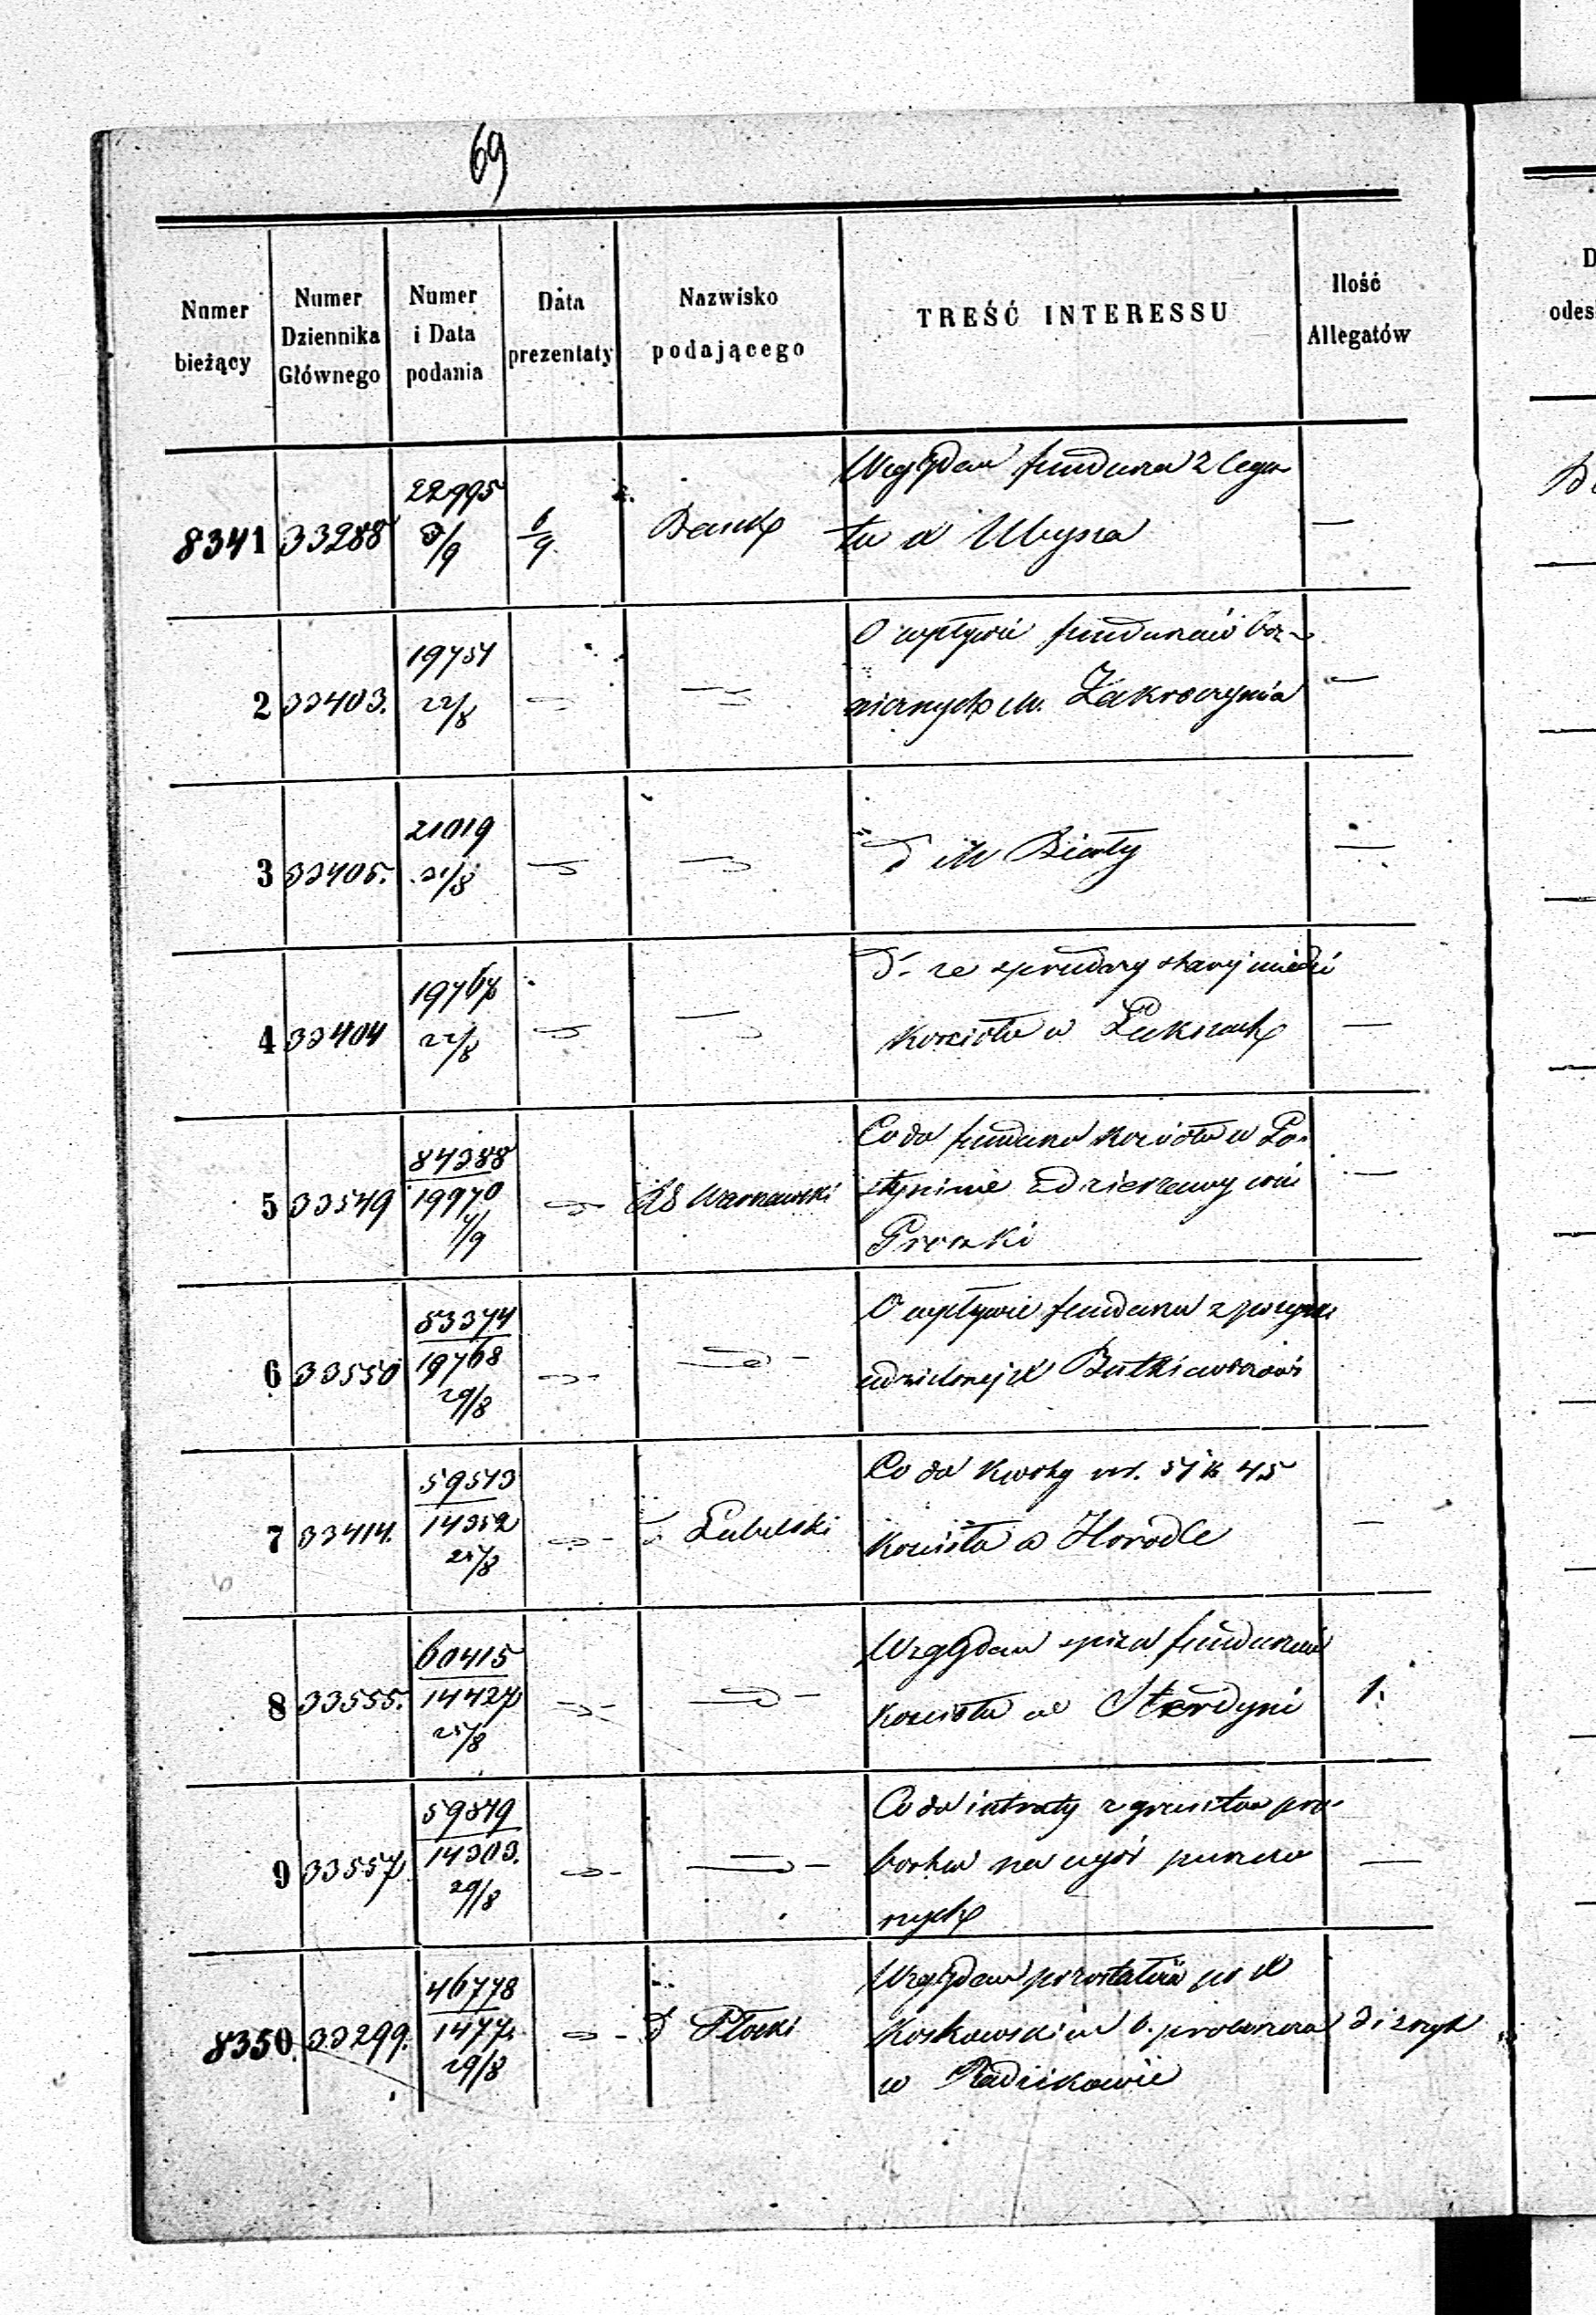 69
Numer bieżący
Numer Dziennika Głównego
Numer i Data podania
Data prezentaty
Nazwisko podającego
TREŚĆ INTERESSU
Ilość Allegatów
8341 33288 22995 3/9 6/9 Bank
Względem funduszu z lega-
tu
—
2 33403. 19751 22/8
O wpływie funduszów boż-
niczych m. Zakroczymia
—
3 33405. 21019 21/8
d m Biały
—
4 33404 19767 22/8
d. ze sprzedaży starej miedzi
kościoła w Łukszach
—
5 33549 84388 19970 4/9 Warszawski
Co do funduszu kościoła w Go-
styninie z dzierżawy wsi
—
6 33550 83374 19768 29/8
O wpływie funduszu z
udzielonej Butkiewiczowi
7 33414. 59513 14352 25/8 Lubelski
Co do kwoty rs. 51 k 45
kościoła w Horodle
—
8 33555. 60415 14427 25/8
Względem funduszów
kościoła w Sterdyni
1.
9 33557 59879 14303. 29/8
Co do intraty z gruntów pro-
bostwa na
nych
—
8350. 33299. 46778 29/8 d Płocki
Względem pozostałości po X
Koskowskim b. proboszczu
w Radzikowie
D
odes